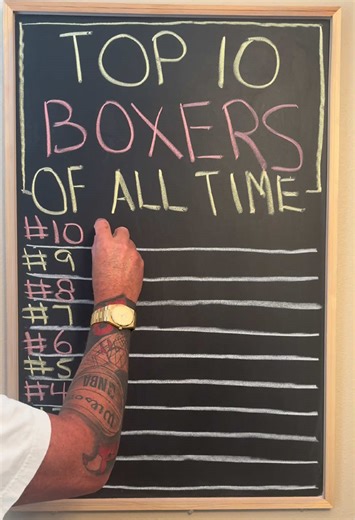 TOP 10
BOXERS
OF ALL TIME
#10
#9
#8
#7
#6
#5
#4
NBA
Wilson